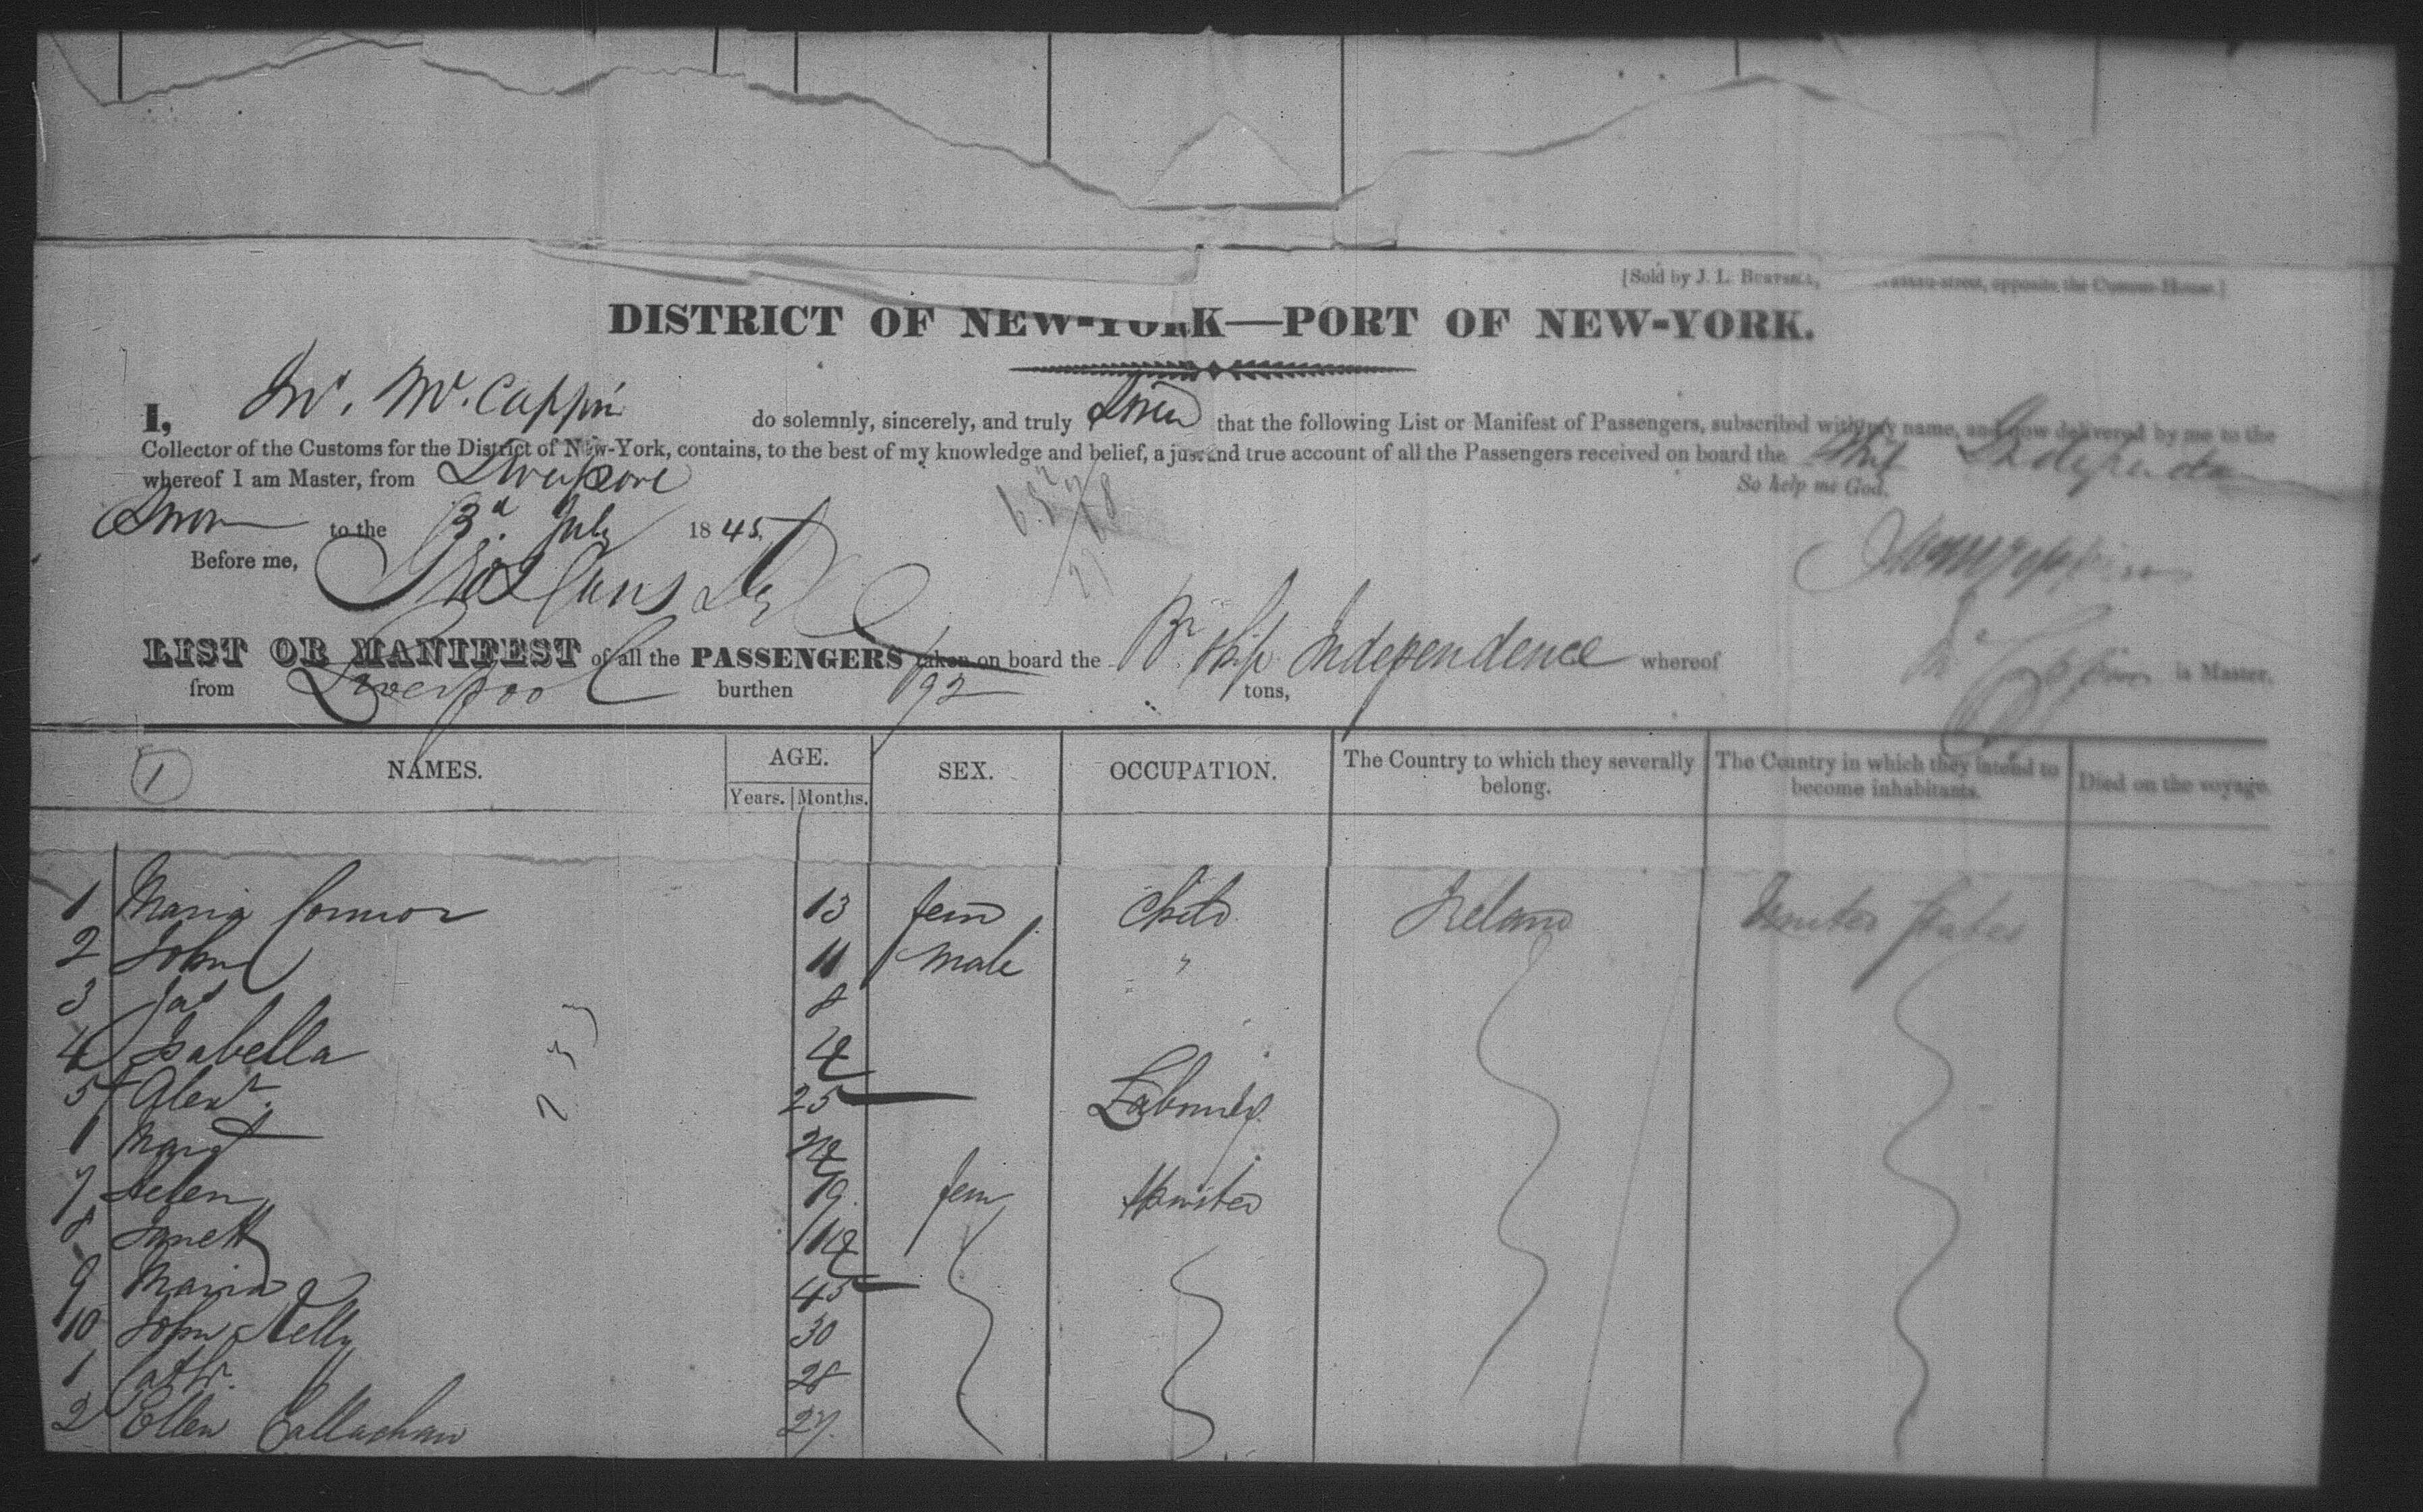 [Sold by J. L. street, opposite the Custom-House.]
DISTRICT OF NEW-YORK—PORT OF NEW-YORK.
I, McCappin do solemnly, sincerely, and truly that the following List or Manifest of Passengers, subscribed with my name, and now delivered by me to the
Collector of the Customs for the District of New-York, contains, to the best of my knowledge and belief, a just and true account of all the Passengers received on board the Ship Independence
whereof I am Master, from Liverpool
So help me God.
to the 3d. July 1845
Before me,
LIST OR MANIFEST of all the PASSENGERS taken on board the Br Ship Independence whereof is Master,
from Liverpool burthen 792 tons,
1 NAMES. AGE. Years. Months. SEX. OCCUPATION. The Country to which they severally belong. The Country in which they intend to become inhabitants. Died on the voyage.
1 Maria Connor 13 fem Child Ireland United States
2 John 11 Male "
3 Jas 8
4 Isabella 4
5 Alexr. 25 Labourer
1 Margt 24
7 Helen 19 fem Spinster
8 Janett 14
9 Maria 45
10 John Kelly 30
1 Cathr. 28
2 Ellen Callaghan 27